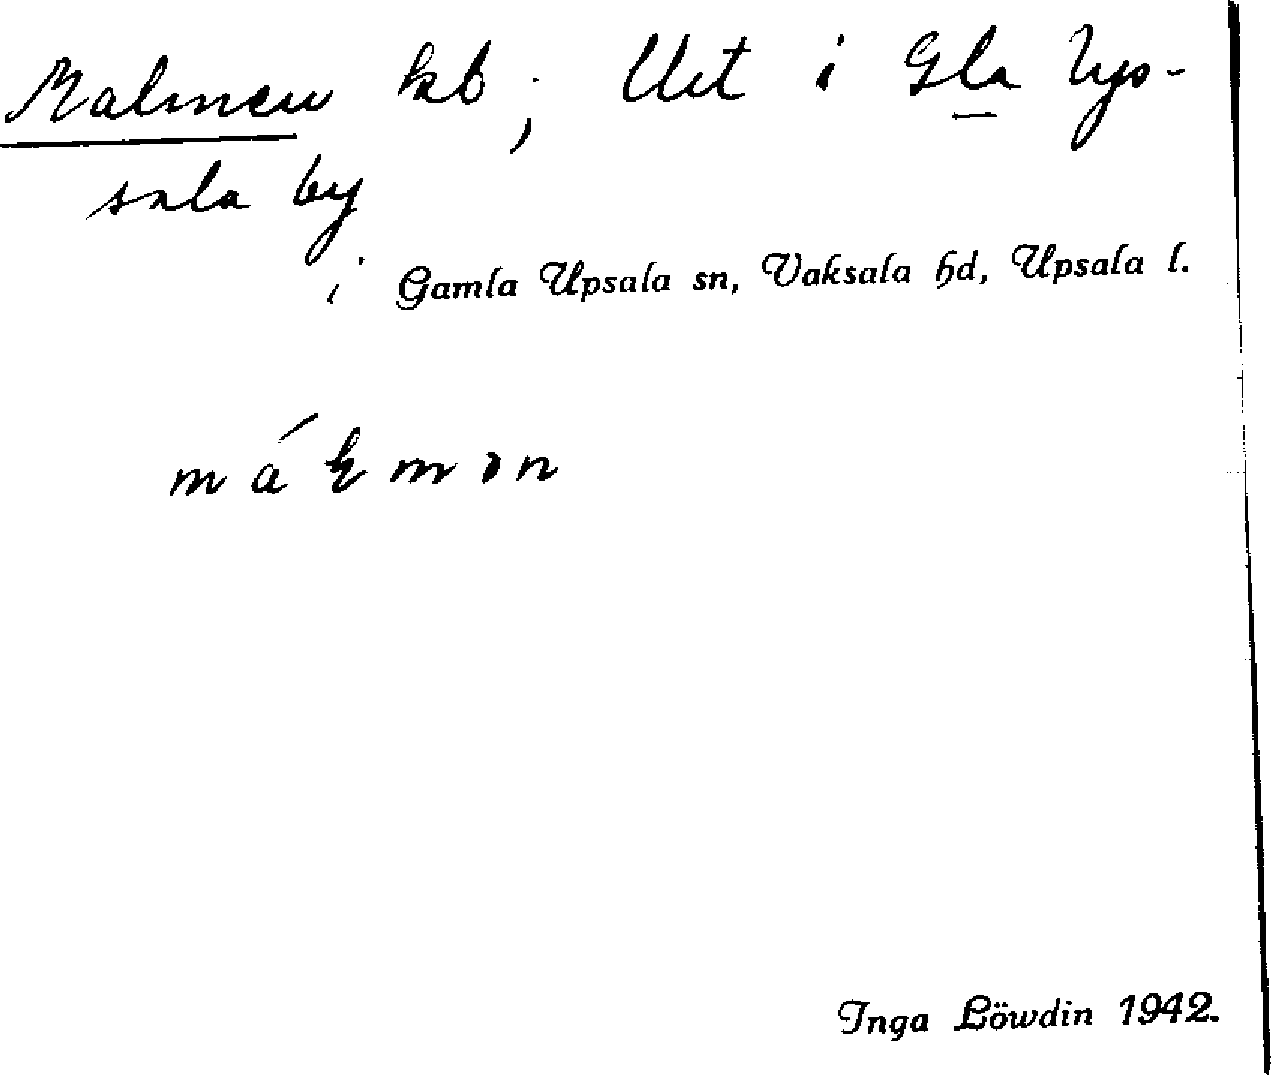 Malmen kb; Urt i Gla Upp-
sala by
i Gamla Upsala sn, Vaksala hd, Upsala l.
Inga Löwdin 1942.